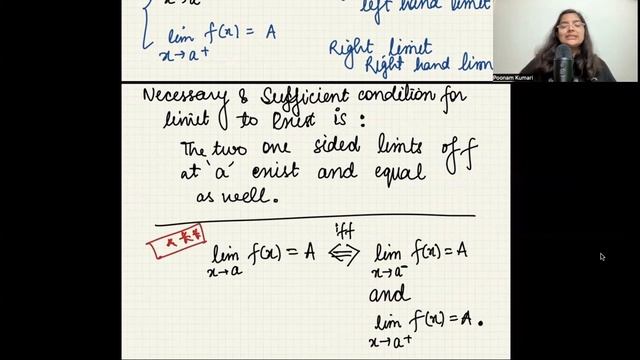 x→a
left hand limit
lim f(x) = A
x→a+
Right limit
Right hand lim
Poonam Kumari
Necessary & Sufficient condition for
limit to Exist is:
The two one sided limits of f
at 'a' exist and equal
as well.
***
lim f(x) = A ⇔ iff lim f(x) = A
x→a x→a-
and
lim f(x) = A.
x→a+